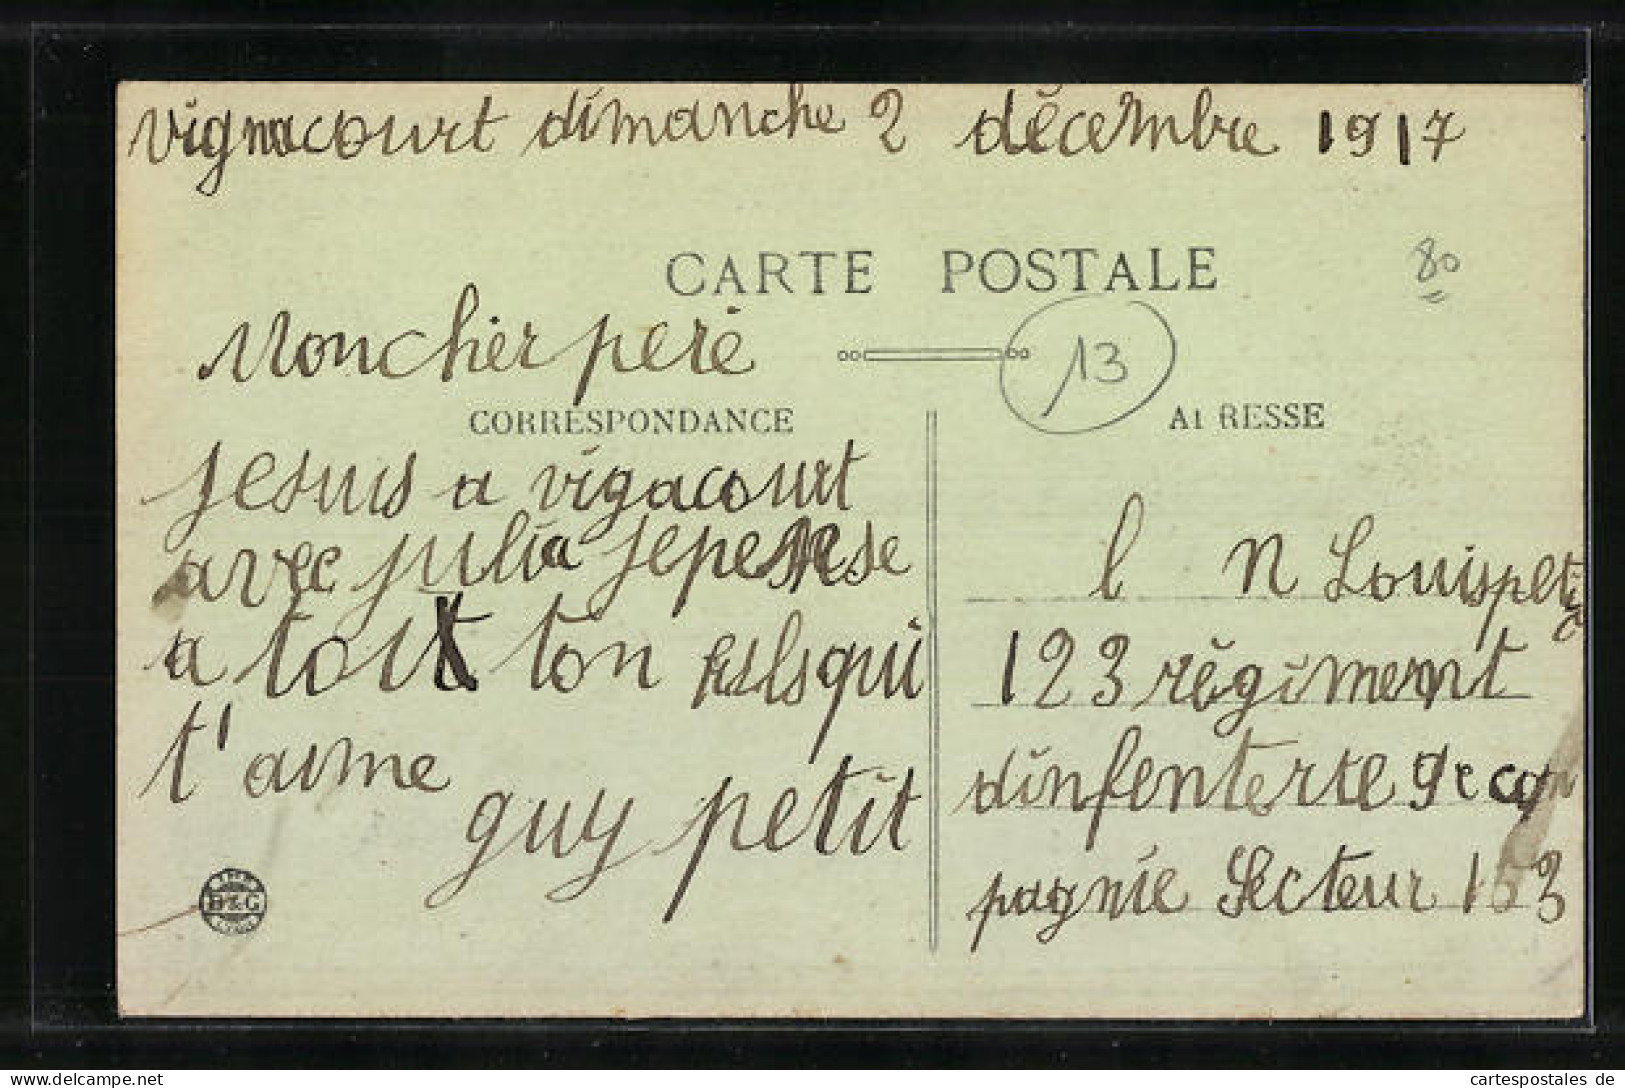 vignacourt dimanche 2 décembre 1917
CARTE POSTALE
80
13
Moncher pere
CORRESPONDANCE
ADRESSE
Jesuis a vigacourt
avec julia jepense
a toi ton fils qui
t'aime
guy petit
l n Louis petit
123 régiment
dinfenterie 9e com
pagnie Secteur 153
B & G
cartespostales de